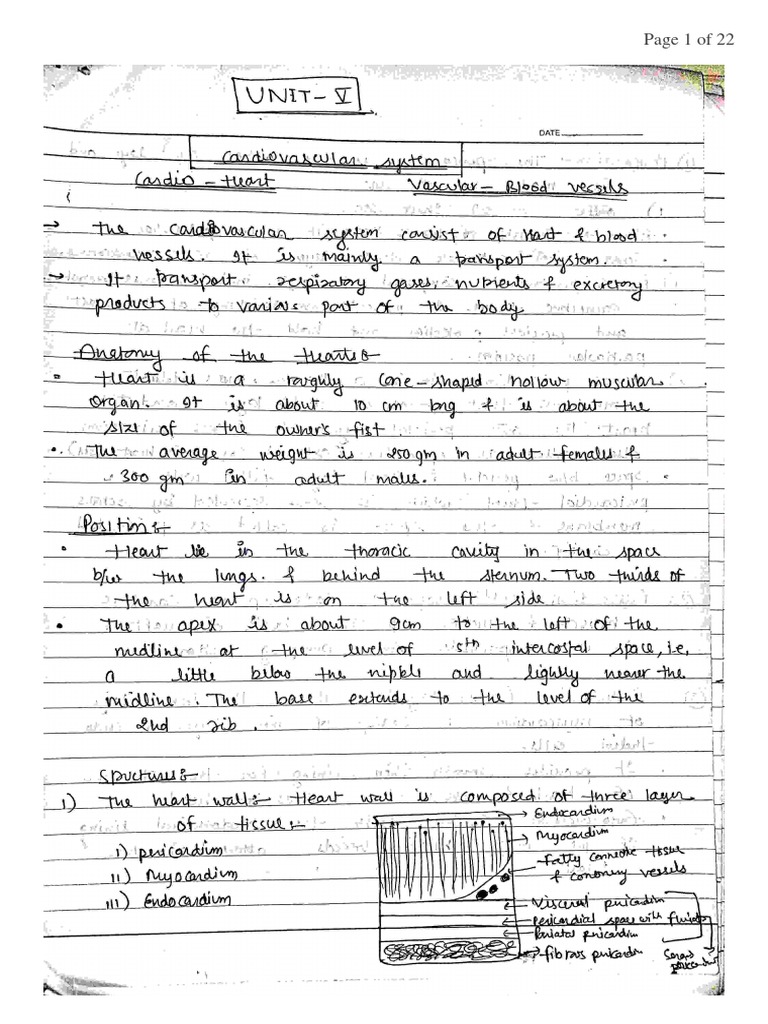 Page 1 of 22
UNIT - V
DATE
Cardiovascular system
Cardio - Heart Vascular - Blood vessels
→ The cardiovascular system consist of Hart & blood
vessels. It is mainly a transport system.
→ It transport respiratory gases, nutrients & excretory
products to various part of the body
Anatomy of the Heart :-
Heart is a roughly cone-shaped hollow muscular
organ. It is about 10 cm long & is about the
size of the owner's fist.
The average weight is 250 gm in adult females &
300 gm in adult males.
Position :-
• Heart lie in the thoracic cavity in the space
b/w the lungs. & behind the sternum. Two thirds of
the heart is on the left side.
• The apex is about 9cm to the left of the
medline at the level of 5th intercostal space, i.e.
a little below the nipple and lightly nearer the
midline. The base extends to the level of the
2nd rib.
Structures :-
1) The heart wall :- Heart wall is composed of three layer
of tissue :-
i) pericardium
ii) Myocardium
iii) Endocardium
Endocardium
Myocardium
Fatty connective tissue
& coronary vessels
Visceral pericardim
Pericardial space with fluid
Parietal pericardim
fibrous pericardim
Serous
pericardium